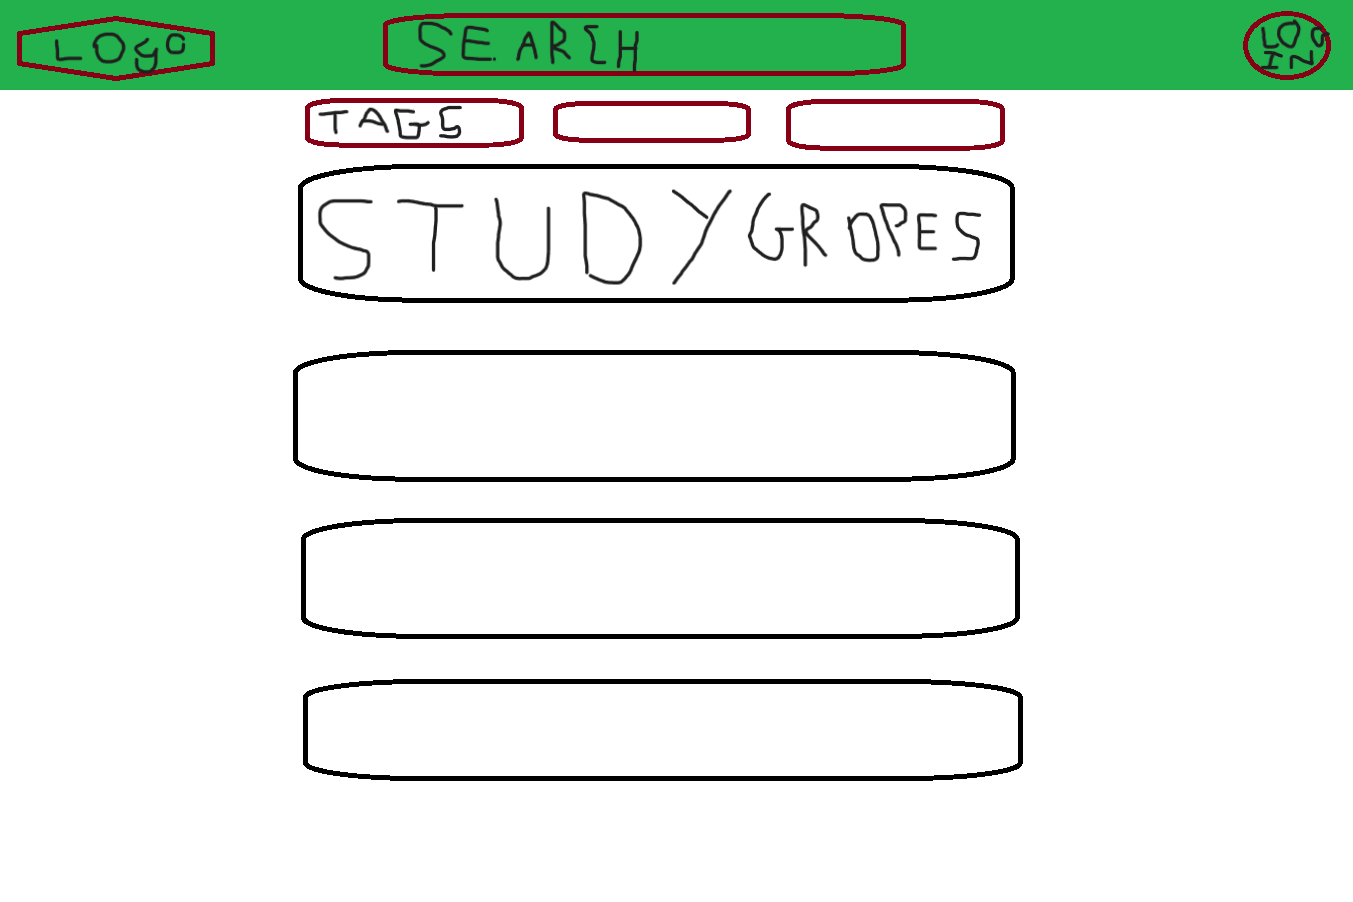 LOgo
SEARCH
LOG
IN
TAGS
STUDYGROPES